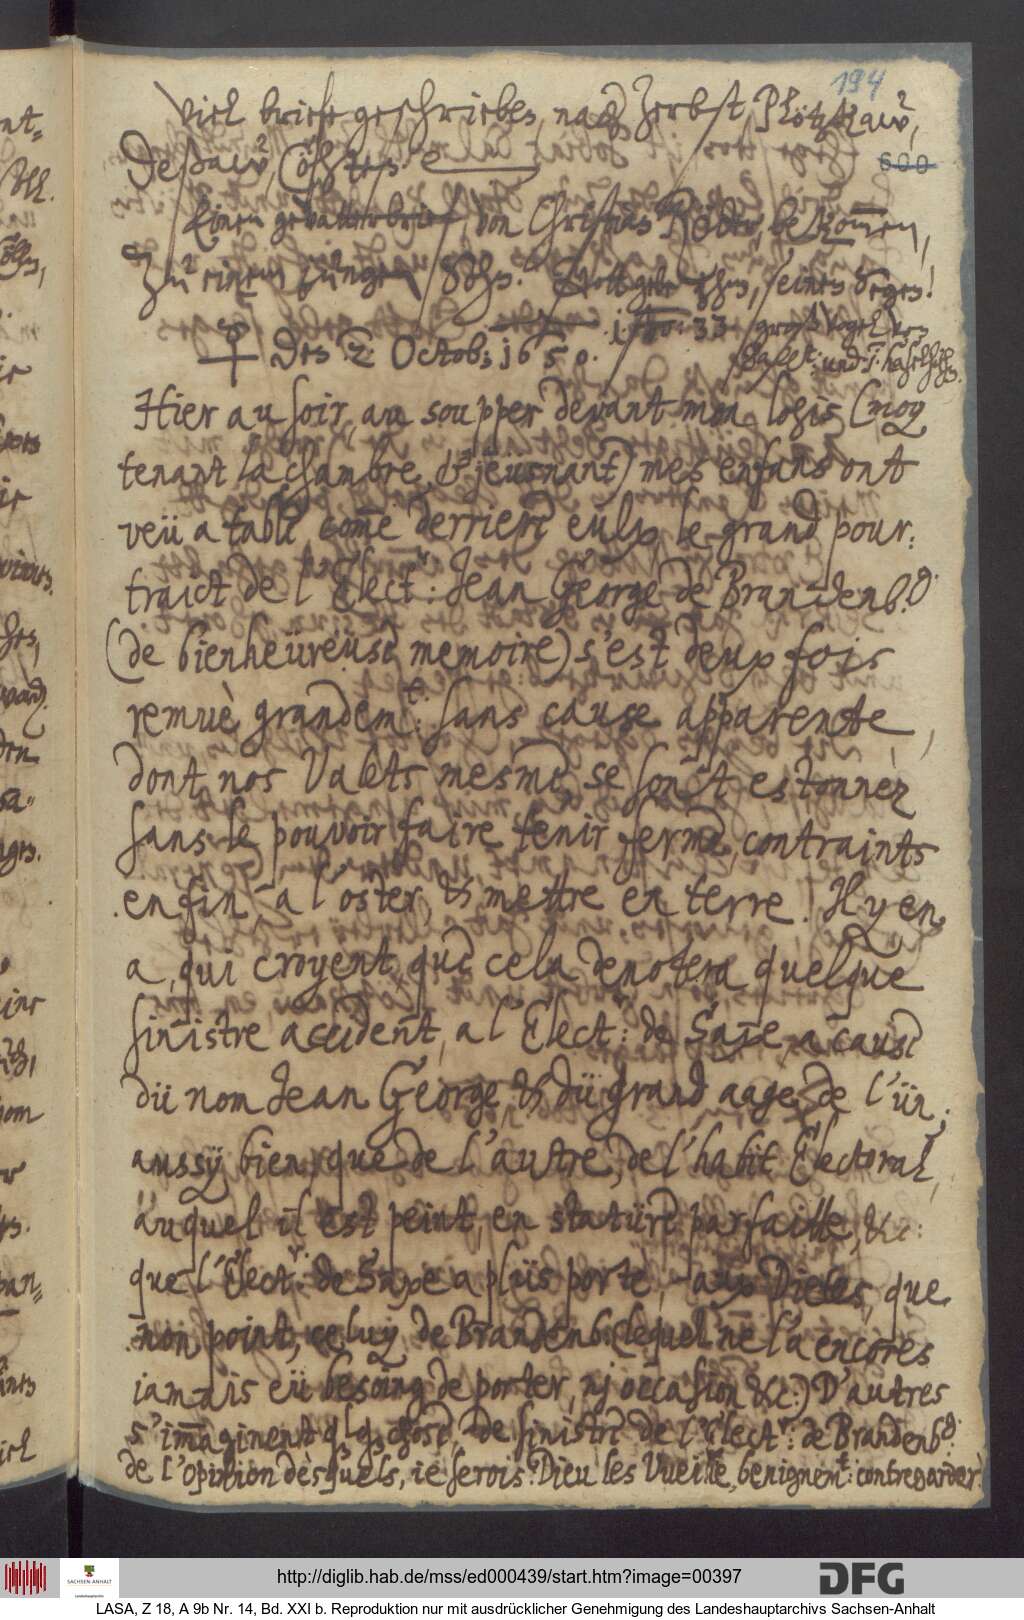 194
Viel briefe geschrieben, nach Zerbst, Plötzkaw,
600
Deßaw, Cöhten.
Einen gevatterbrief, von Christus Röder, bekommen,
Zu einem jungen Sohn. Gott gebe ihm, seinen Segen!
den 2. Octob: 1650.
und 7. haselhühner
Hier au soir, au soupper devant mon logis (moy
tenant la chambre, & jeusnant) mes enfans ont
veü a table come derriere eulx le grand pour:
traict de l'Elect: Jean George de Brandenb.g
(de bienheüreüse memoire) s'est deux fois
remuè grandemt: sans cause apparente,
dont nos Valets mesme, se sont estonnèz
sans le pouvoir faire tenir ferme, contraints
en fin a l'oster, & mettre en terre. Il y en
a, qui croyent, que cela denotera quelque
sinistre accident, a l'Elect: de Saxe, a cause
dü nom Jean George & dü grand aage, de l'ün,
aussÿ bien, que de l'autre, de l'habit Electoral,
auquel il est peint, en statüre parfaitte, &c:
que l'Elect.r de Saxe a plüs portè, aux Dietes, que
non point, celuy de Brandenb: lequel ne l'a encores
jamais eü besoing de porter, nj occasion &c:) D'autres
s'imaginent qlq chose, de sinistre de l'Elect.r: de Brandenb.g
de l'opinion desquels, je serois. Dieu les vueille, benignemt: contregarder!
http://diglib.hab.de/mss/ed000439/start.htm?image=00397
SACHSEN-ANHALT
DFG
LASA, Z 18, A 9b Nr. 14, Bd. XXI b. Reproduktion nur mit ausdrücklicher Genehmigung des Landeshauptarchivs Sachsen-Anhalt